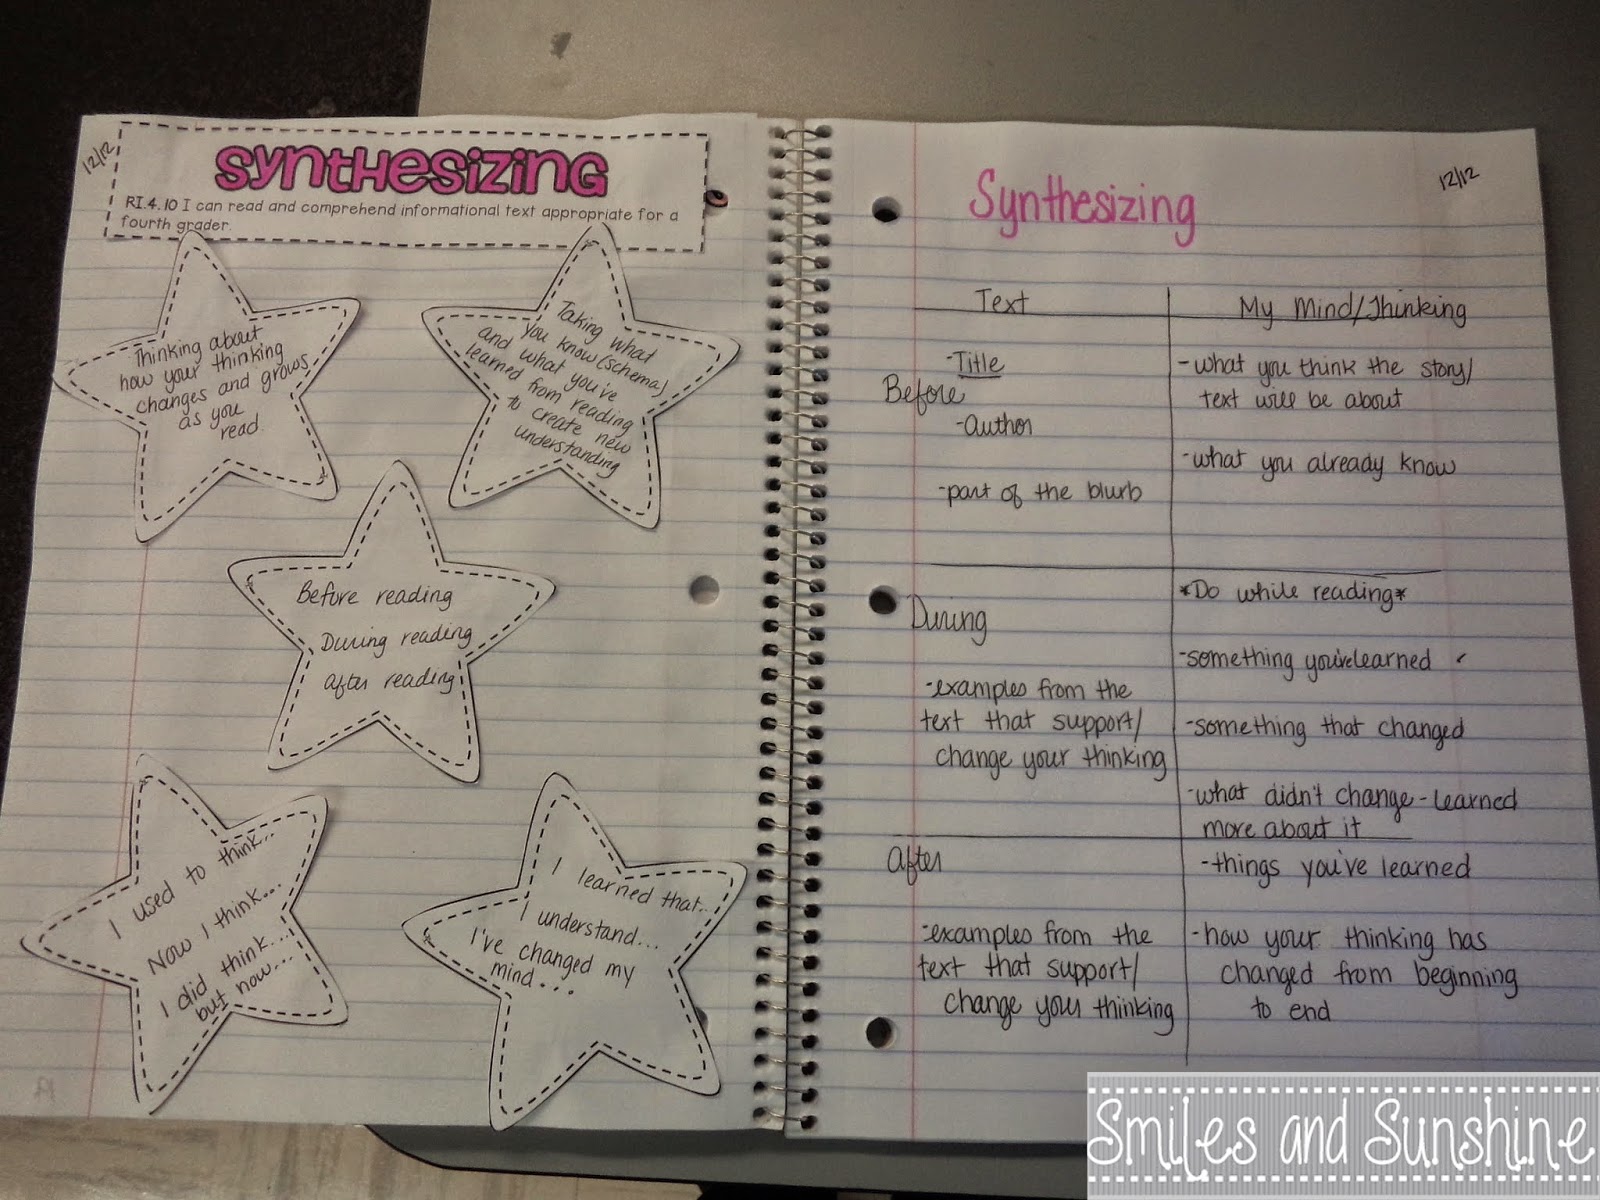 12/12
synthesizing
RI.4.10 I can read and comprehend informational text appropriate for a
fourth grader.
Thinking about
how your thinking
changes and grows
as you
read.
Taking what
you know (schema)
and what you've
learned from reading
to create new
understanding
Before reading
During reading
after reading
I used to think...
Now I think....
I did think....
but now...
I learned that..
I understand...
I've changed my
mind....
12/12
Synthesizing
Text
My Mind/Thinking
-Title
Before
-Author
-part of the blurb
-what you think the story/
text will be about
-what you already know
During
-examples from the
text that support/
change your thinking
*Do while reading*
-something you've learned
-something that changed
-what didn't change - learned
more about it
After
-examples from the
text that support/
change your thinking
-things you've learned
-how your thinking has
changed from beginning
to end
Smiles and Sunshine